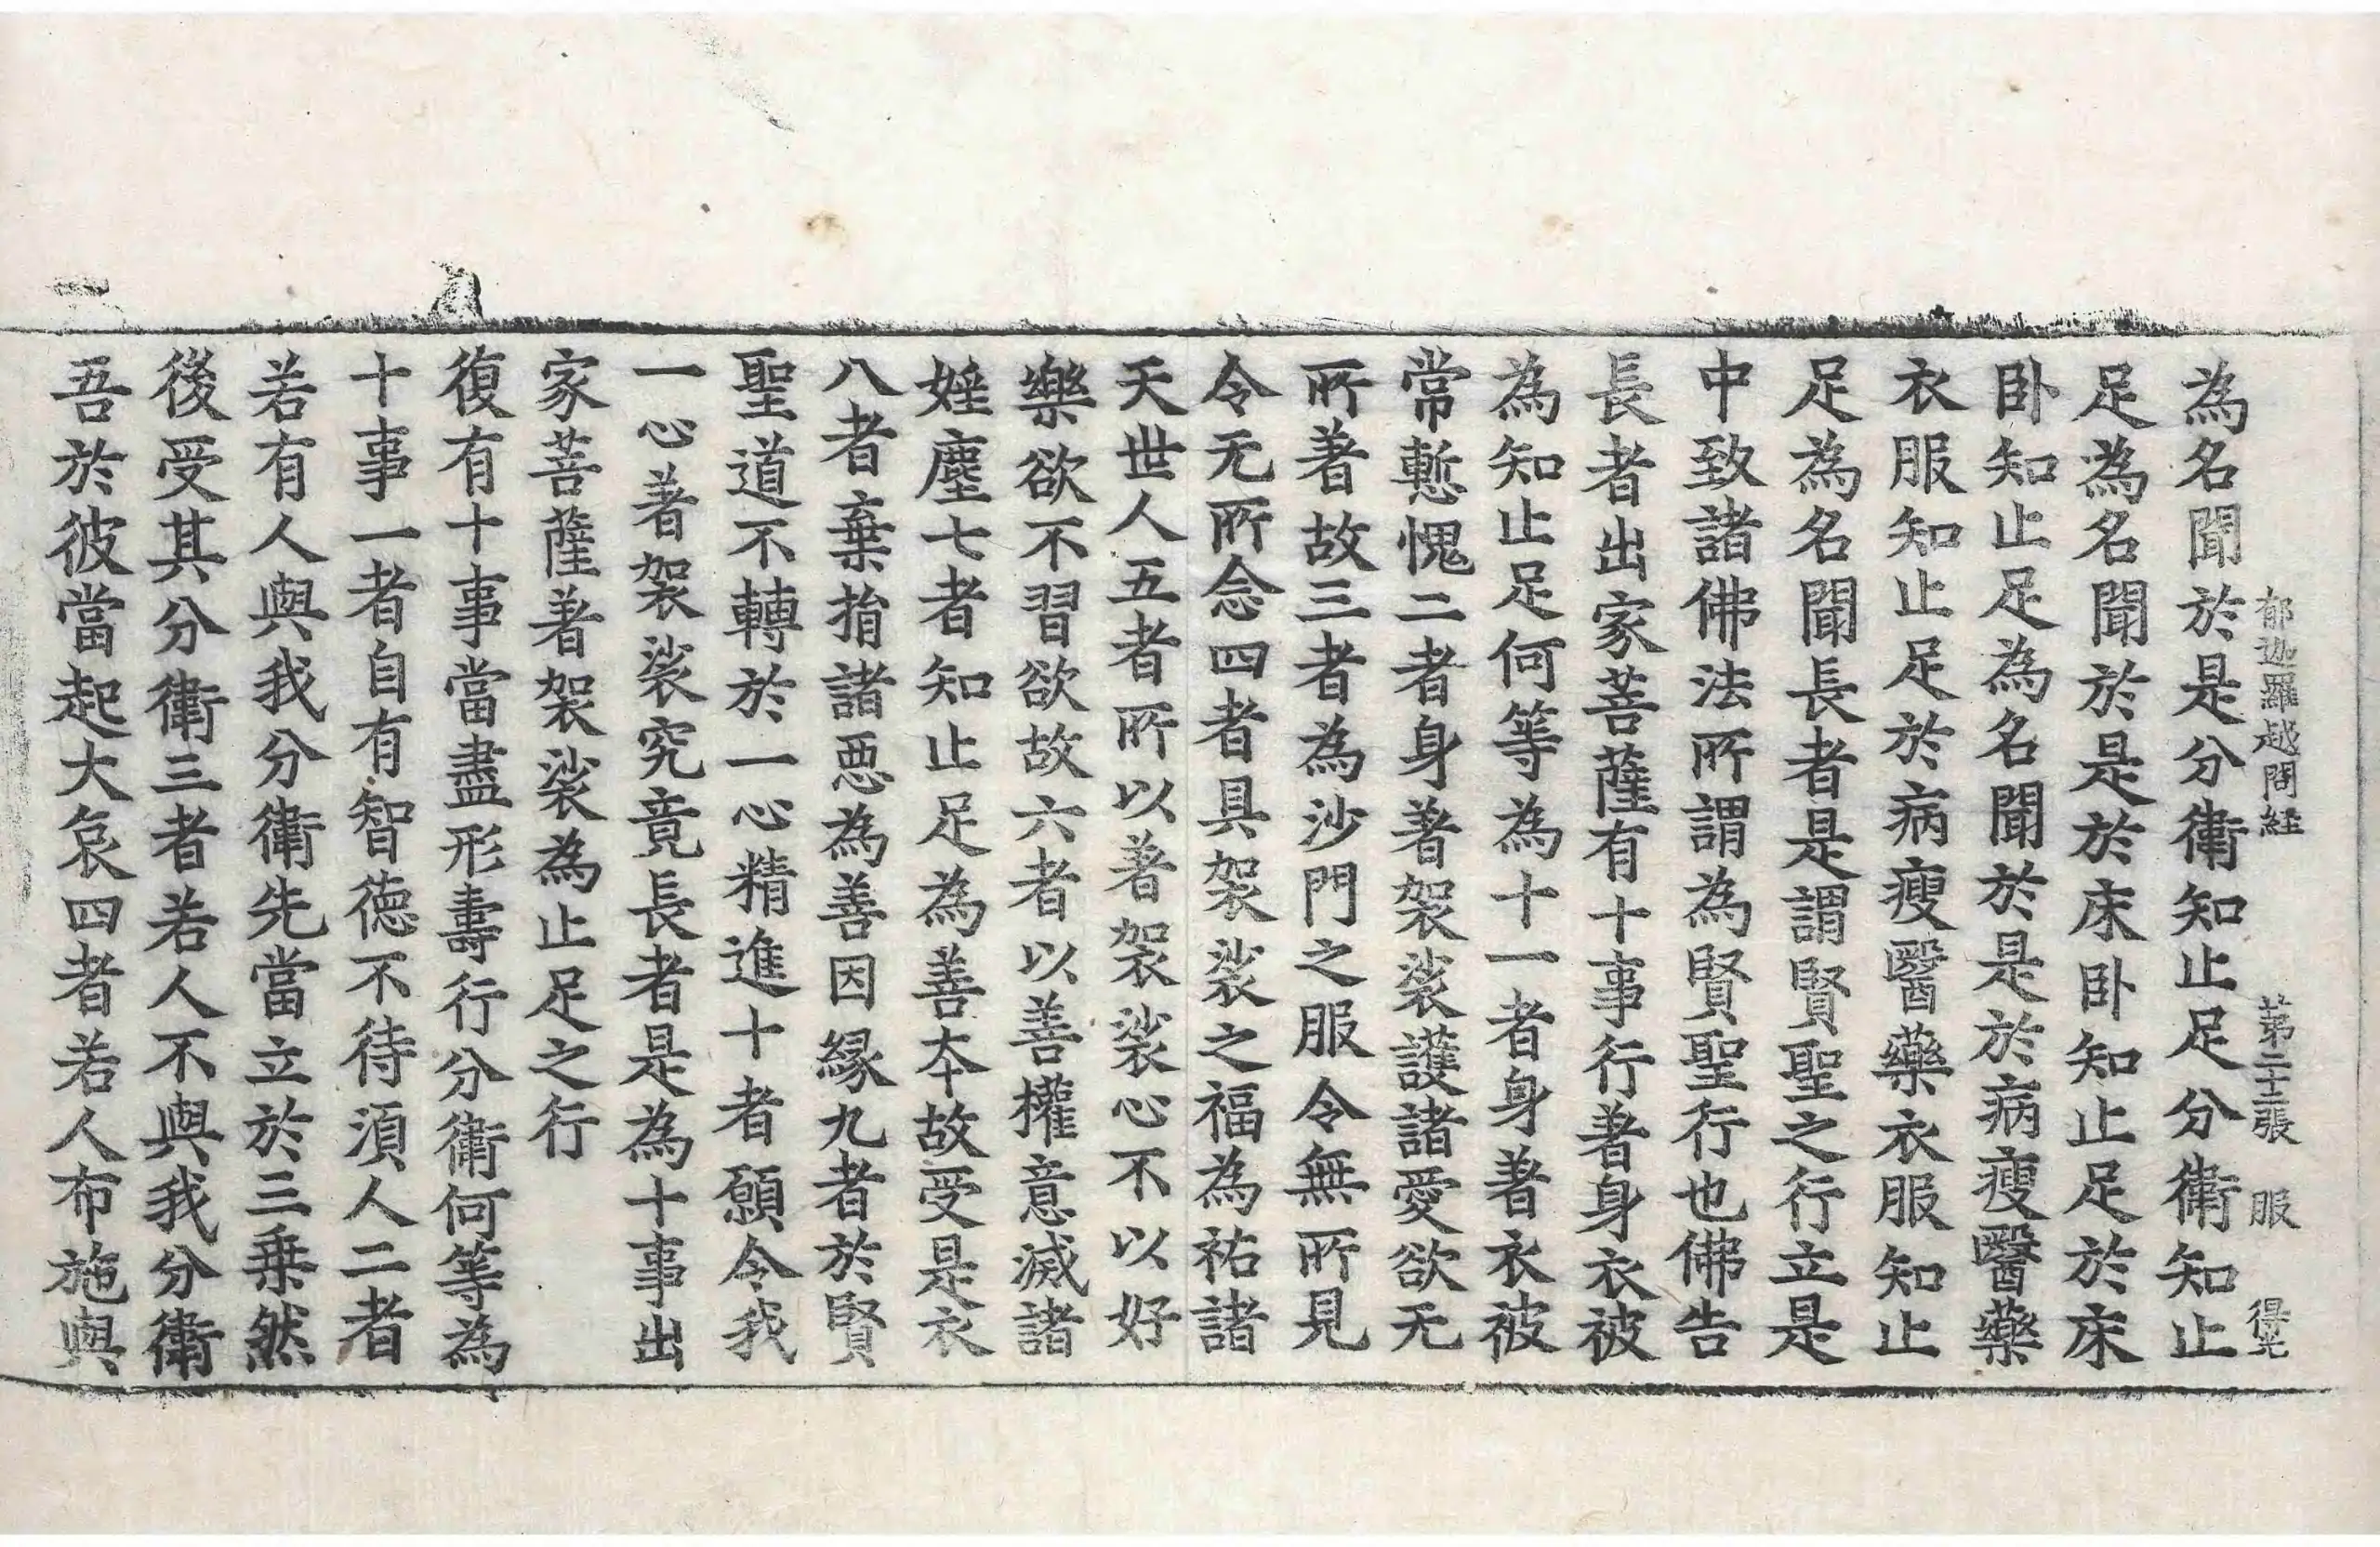 郁迦羅越問経　第二十二張　服　得光
為名聞於是分衛知止足分衛知止
足為名聞於是於床卧知止足於床
卧知止足為名聞於是於病瘦醫藥
衣服知止足於病瘦醫藥衣服知止
足為名聞長者是謂賢聖之行立是
中致諸佛法所謂為賢聖行也佛告
長者出家菩薩有十事行著身衣被
為知止足何等為十一者身著衣被
常慙愧二者身著袈裟護諸愛欲无
所著故三者為沙門之服令無所見
令无所念四者具袈裟之福為祐諸
天世人五者所以著袈裟心不以好
樂欲不習欲故六者以善權意滅諸
婬塵七者知止足為善本故受是衣
八者棄捐諸惡為善因緣九者於賢
聖道不轉於一心精進十者願令我
一心著袈裟究竟長者是為十事出
家菩薩著袈裟為止足之行
復有十事當盡形壽行分衛何等為
十事一者自有智德不待須人二者
若有人與我分衛先當立於三乗然
後受其分衛三者若人不與我分衛
吾於彼當起大哀四者若人布施與